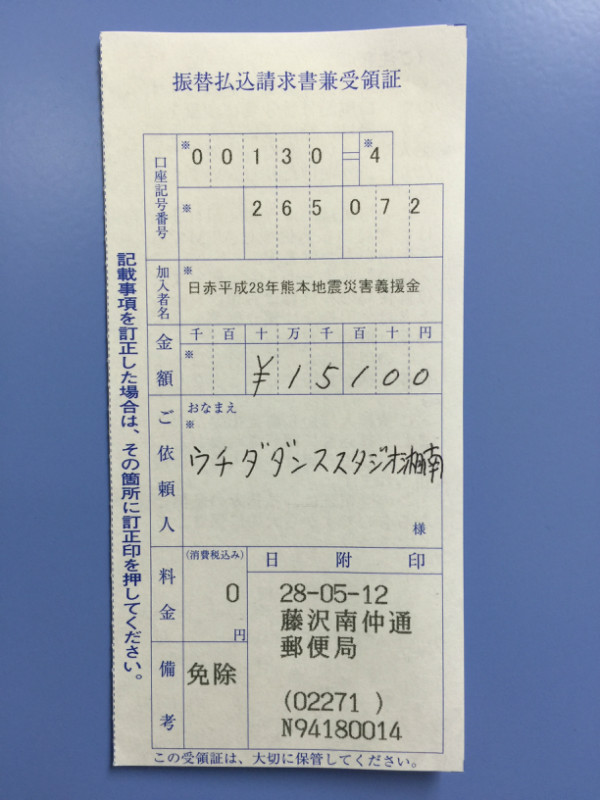 振替払込請求書兼受領証
口座記号番号
※ 00130=※4
※ 265072
加入者名
※
日赤平成28年熊本地震災害義援金
金額
千百十万千百十円
※ ¥15100
ご依頼人
おなまえ
※
ウチダダンススタジオ湘南
様
料金
(消費税込み)
0
円
備考
免除
日附印
28-05-12
藤沢南仲通
郵便局
(02271 )
N94180014
この受領証は、大切に保管してください。
記載事項を訂正した場合は、その箇所に訂正印を押してください。